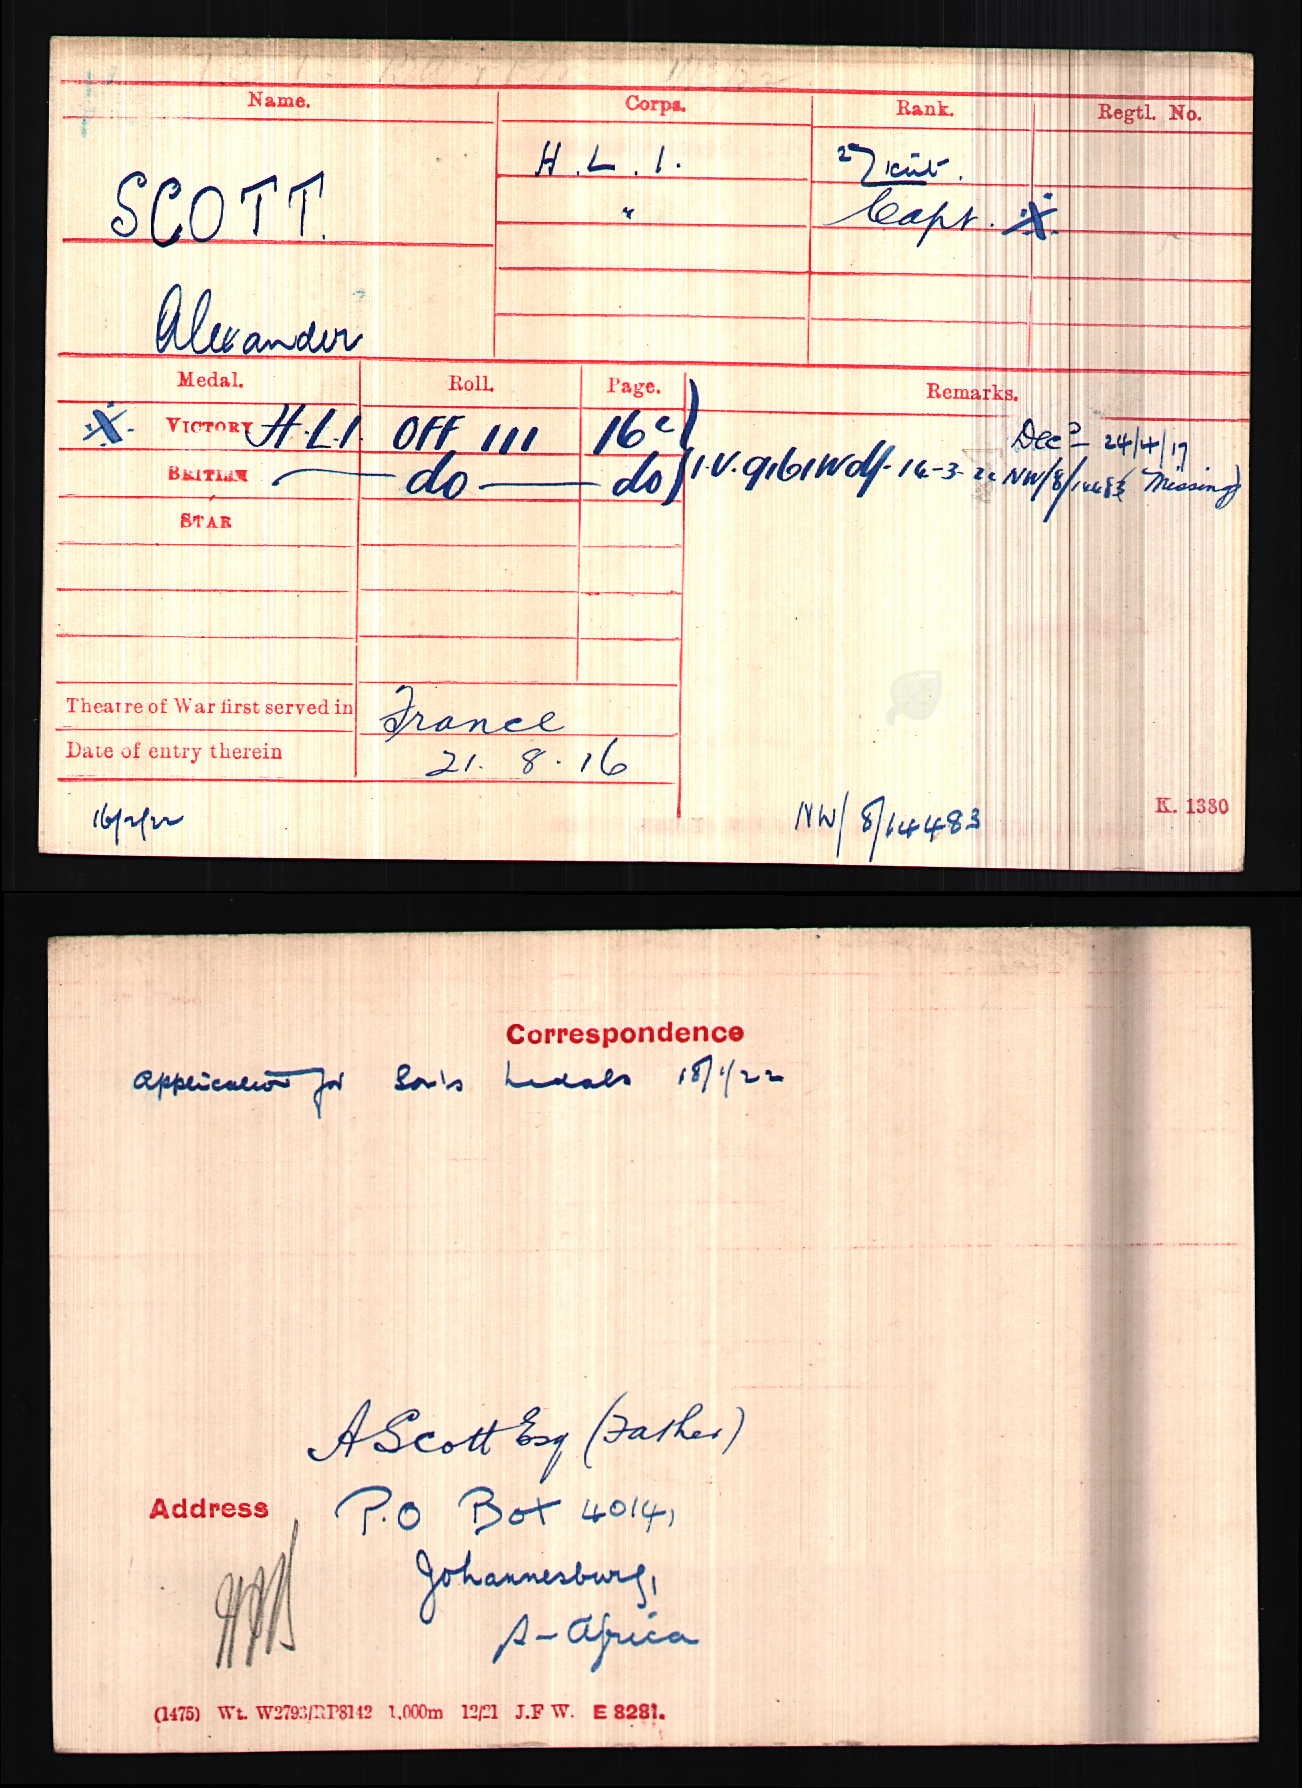 Name. Corps. Rank. Regtl. No.
H.L.I. 2/Lieut.
SCOTT. " Capt. X
Alexander
Medal. Roll. Page. Remarks.
X VICTORY H.L.I. OFF 111 16c Decd 24/4/17
BRITISH do do I.V. 9161 Wdf. 14-3-22 NW/8/14483 (Missing)
STAR
Theatre of War first served in France
Date of entry therein 21.8.16
16/2/22 NW/8/14483 K. 1380
Correspondence
Application for Son's Medals 18/1/22
A Scott Esq (Father)
Address P.O Box 4014,
Johannesburg,
S-Africa
(1475) Wt. W2793/RP8142 1,000m 12/21 J.F W. E 8281.